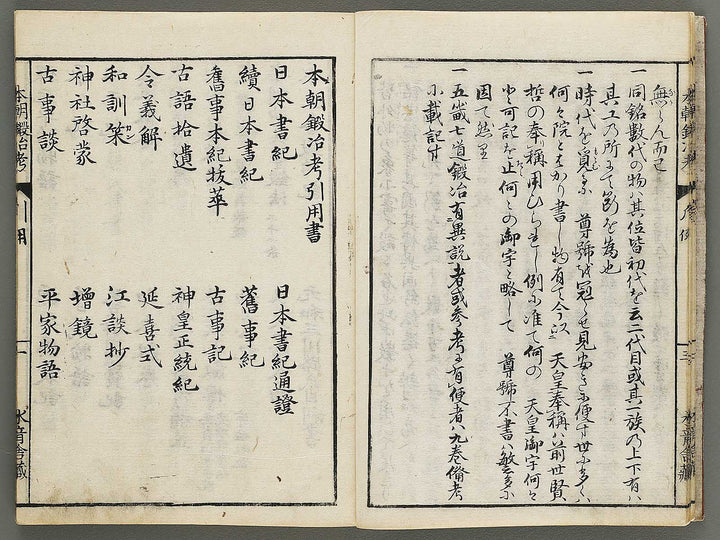 無らん而已
一 同銘數代の物ハ其位皆初代を云二代目或其一族乃上下有ハ
其工乃所にて筋を為也
一 時代を　　尊號を冠らせ見安き小便す世小多くハ
何々院とばかり書し物有て今以　天皇奉稱ハ前世賢
哲の奉稱用ひら　し例小准て何の　天皇御宇何々
と可記を止何々の御宇と略して　尊號不書ハ　多小
因て然里
一 五畿七道鍛冶有異說者或參考る有便者ハ九巻備考
小載記す
本朝鍛冶考引用書
日本書紀　日本書紀通證
續日本書紀　舊事紀
舊事本紀拔萃　古事記
古語拾遺　神皇正統紀
令義解　延喜式
和訓栞　江談抄
神社啓蒙　增鏡
古事談　平家物語
本朝鍛冶考　凡例　三　水龍舍藏
本朝鍛冶考　引用　一　水龍舍藏